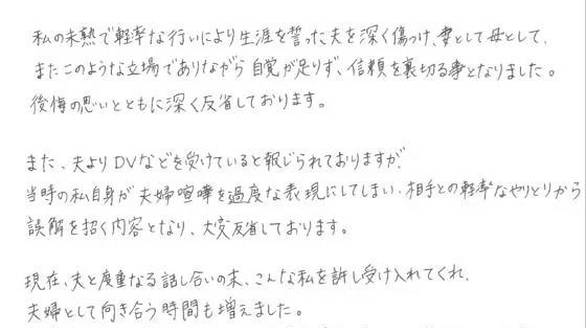 私の未熟で軽率な行いにより生涯を誓った夫を深く傷つけ、妻として母として、
またこのような立場でありながら自覚が足りず、信頼を裏切る事となりました。
後悔の思いとともに深く反省しております。
また、夫よりDVなどを受けていると報じられておりますが、
当時の私自身が夫婦喧嘩を過度な表現にしてしまい、相手との軽率なやりとりから
誤解を招く内容となり、大変反省しております。
現在、夫と度重なる話し合いの末、こんな私を許し受け入れてくれ、
夫婦として向き合う時間も増えました。